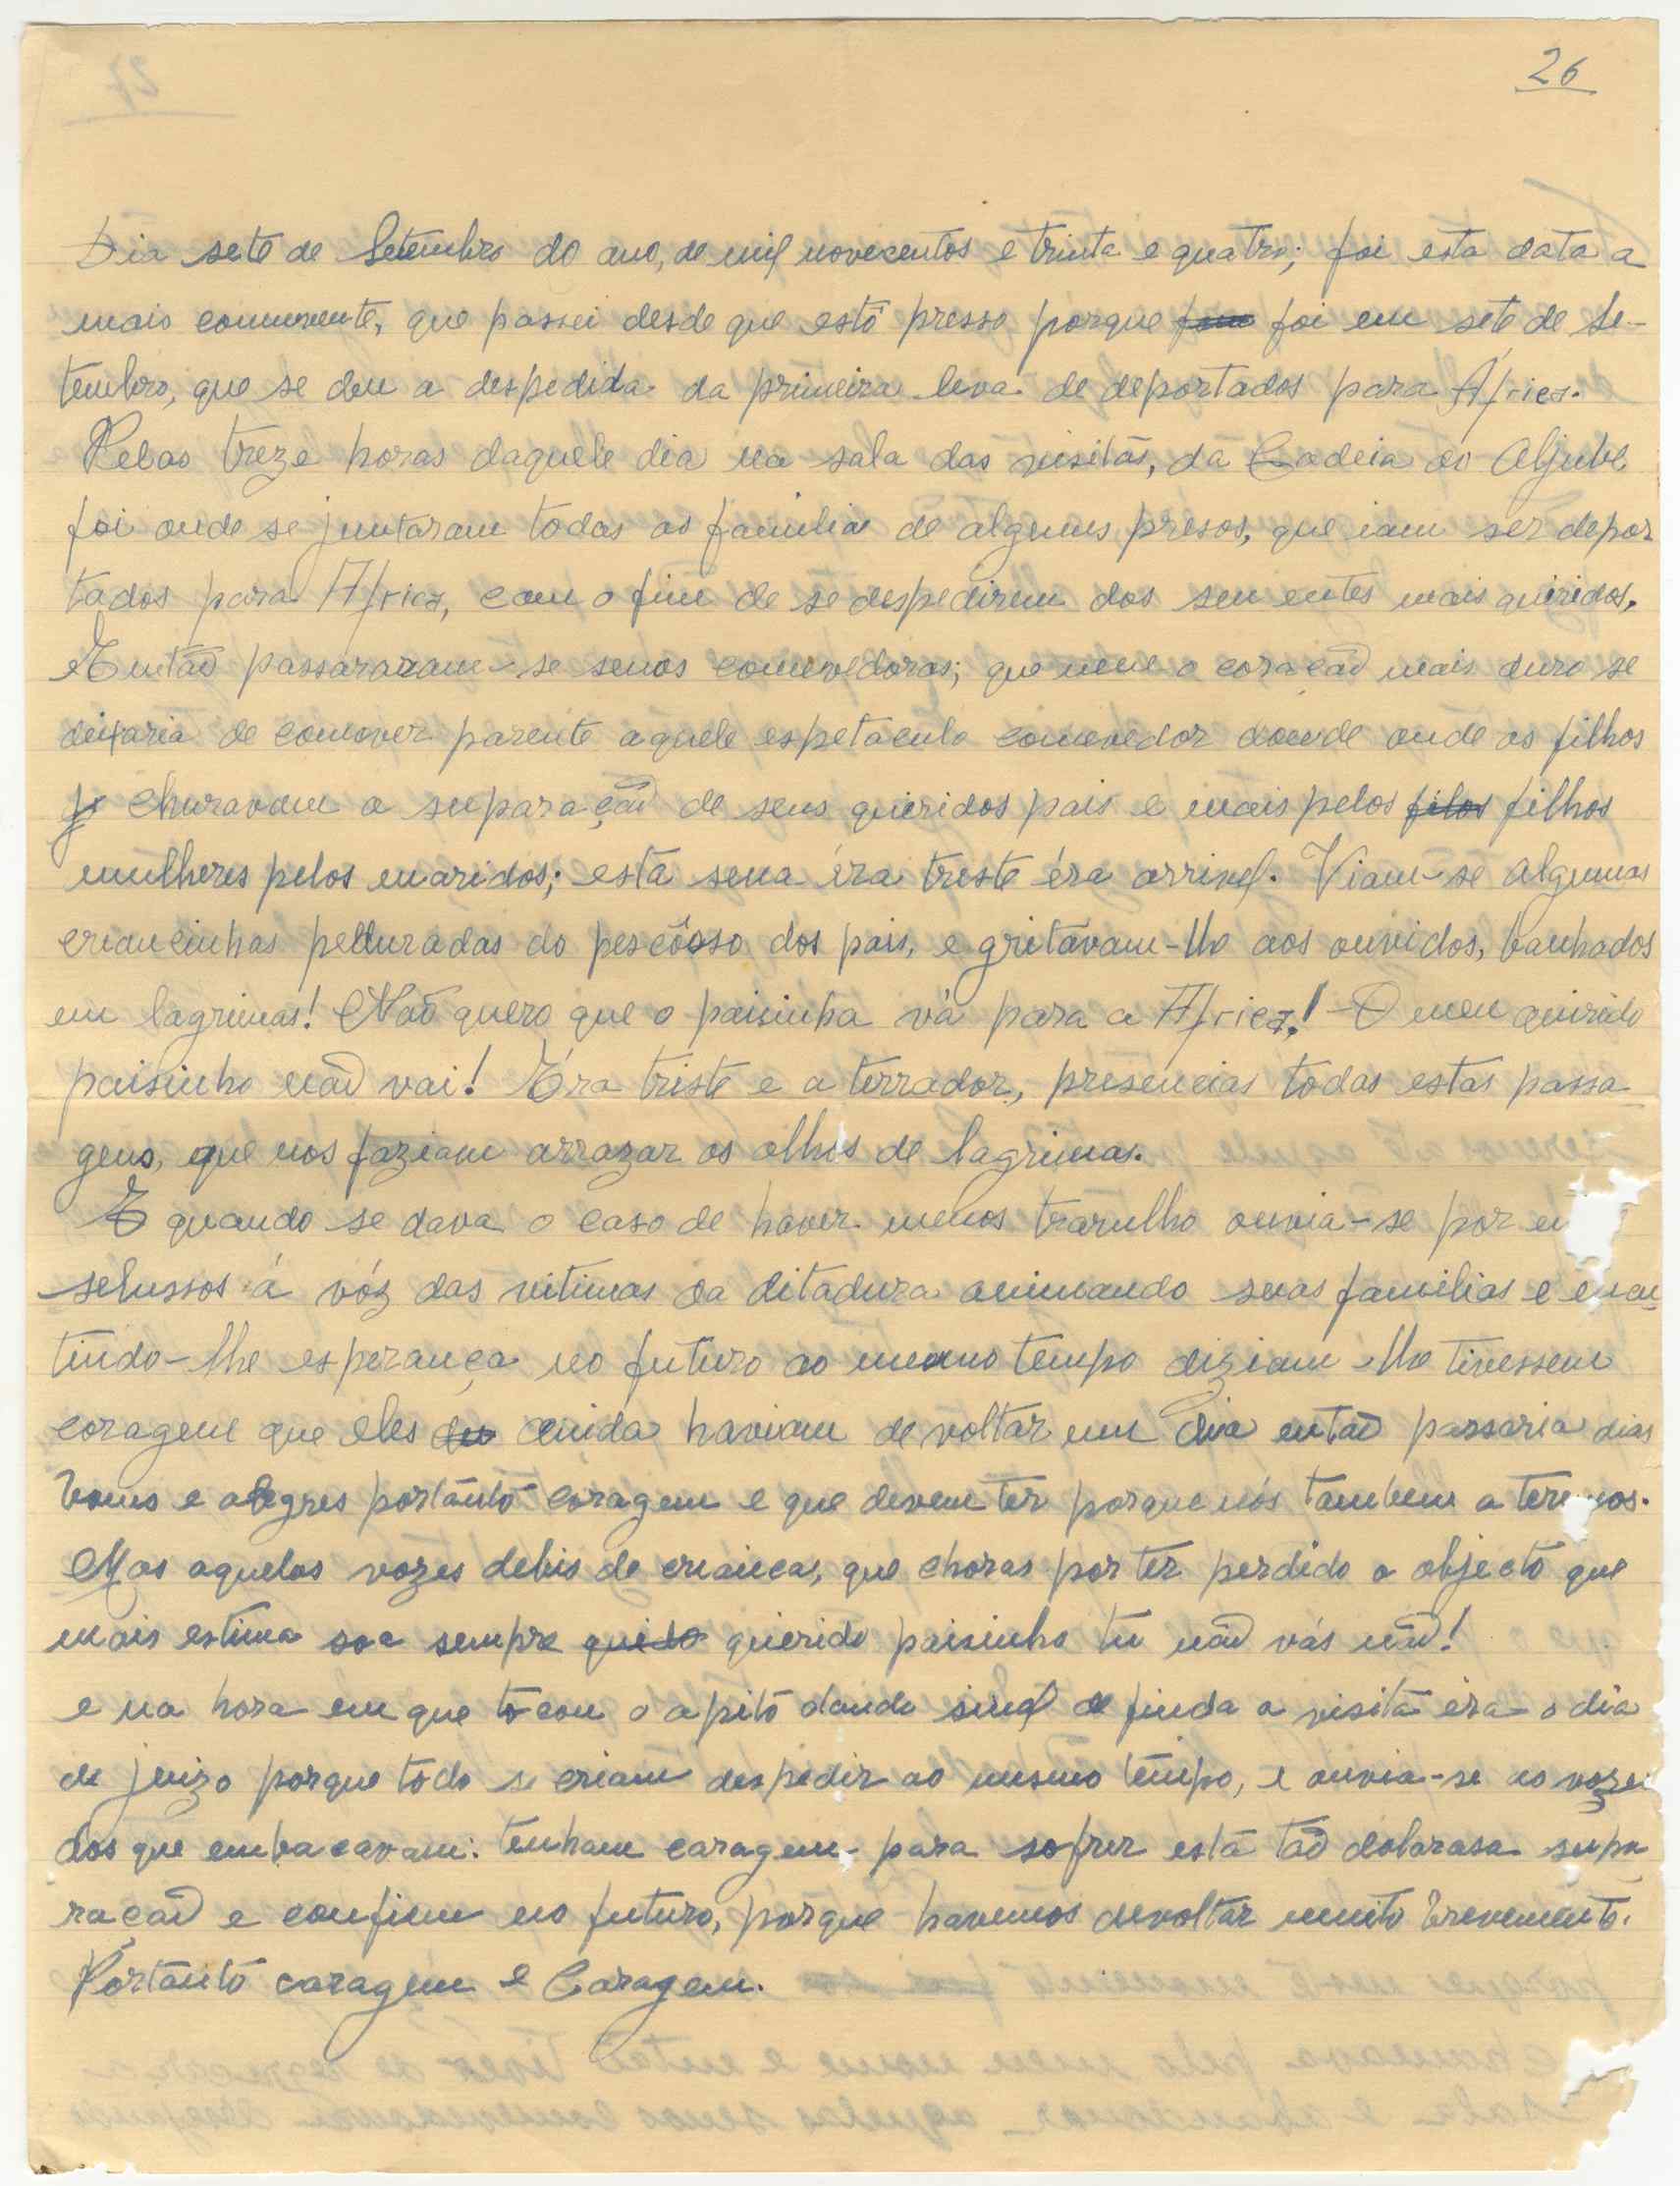 26
Dia sete de Setembro do ano, de mil novecentos e trinta e quatro; foi esta data a
mais commvente, que passei desde que estô presso porque foi em sete de Se-
tembro, que se deu a despedida da primeira leva de deportados para África.
Pelas treze horas daquele dia na sala das visitas, da Cadeia do Aljube
foi onde se juntaram todas as familia de alguns presos, que iam ser depor
tados para Africa, com o fim de se despedirem dos seu entes mais quiridos.
Então passararam-se senas comovedoras; que nem o coração mais duro se
deixaria de comover parente aquele espetaculo comovedor donde onde os filhos
churavam a suparação de seus queridos pais e mais pelos filos filhos
mulheres pelos maridos; esta sena éra treste éra orrivel. Viam-se algumas
criancinhas penduradas do pescôsso dos pais, e gritavam-lhe aos ouvidos, banhados
em lagrimas! Não quero que o paisinha vá para a Africa! O meu quirido
paisinho não vai! Éra triste e a terrador, presencias todas estas passa-
gens, que nos faziam arrazar os olhos de lagrimas.
E quando se dava o caso de haver menos trarulho ouvia-se por
selussos á vóz das vitimas da ditadura animando suas familias e
tindo-lhe esperança no futuro ao mesmo tempo diziam-lhe tivessem
coragem que eles ainda haviam de voltar um dia então passaria dias
bons e alegres portanto coragem e que devem ter porque nós tambem a teremos.
Mas aquelas vozes debis de crianca, que choras por ter perdido o objecto que
mais estima soa sempre querido paisinho tu não vás não!
e na hora em que tocou o apito dando sinal de finda a visita éra o dia
de juizo porque todo se criam despedir ao mesmo tempo, e ouvia-se as vozes
dos que embacavam: tenham caragem para sofrer esta tão dolarasa supa
ração e confiem no futuro, porque havemos devoltar muito brevemente.
Portanto caragem e Caragem.